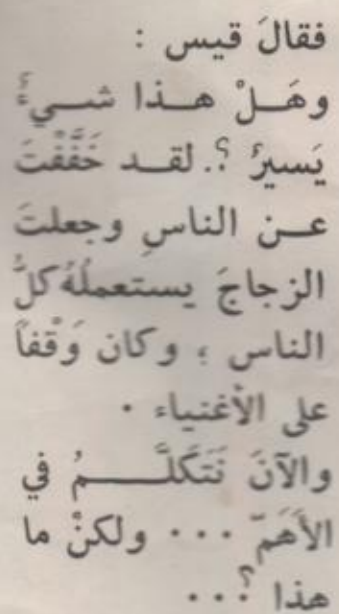 فقالَ قيس :
وهَلْ هـذا شـيءٌ
يَسيرٌ ؟. لقـد خَفَّفْتَ
عـن الناسِ وجعلتَ
الزجاجَ يستعملُهُ كلُّ
الناس ؛ وكان وَقْفاً
على الأغنياء .
والآنَ نَتَكَلَّـــمُ في
الأهَمّ ... ولكنْ ما
هذا ؟...